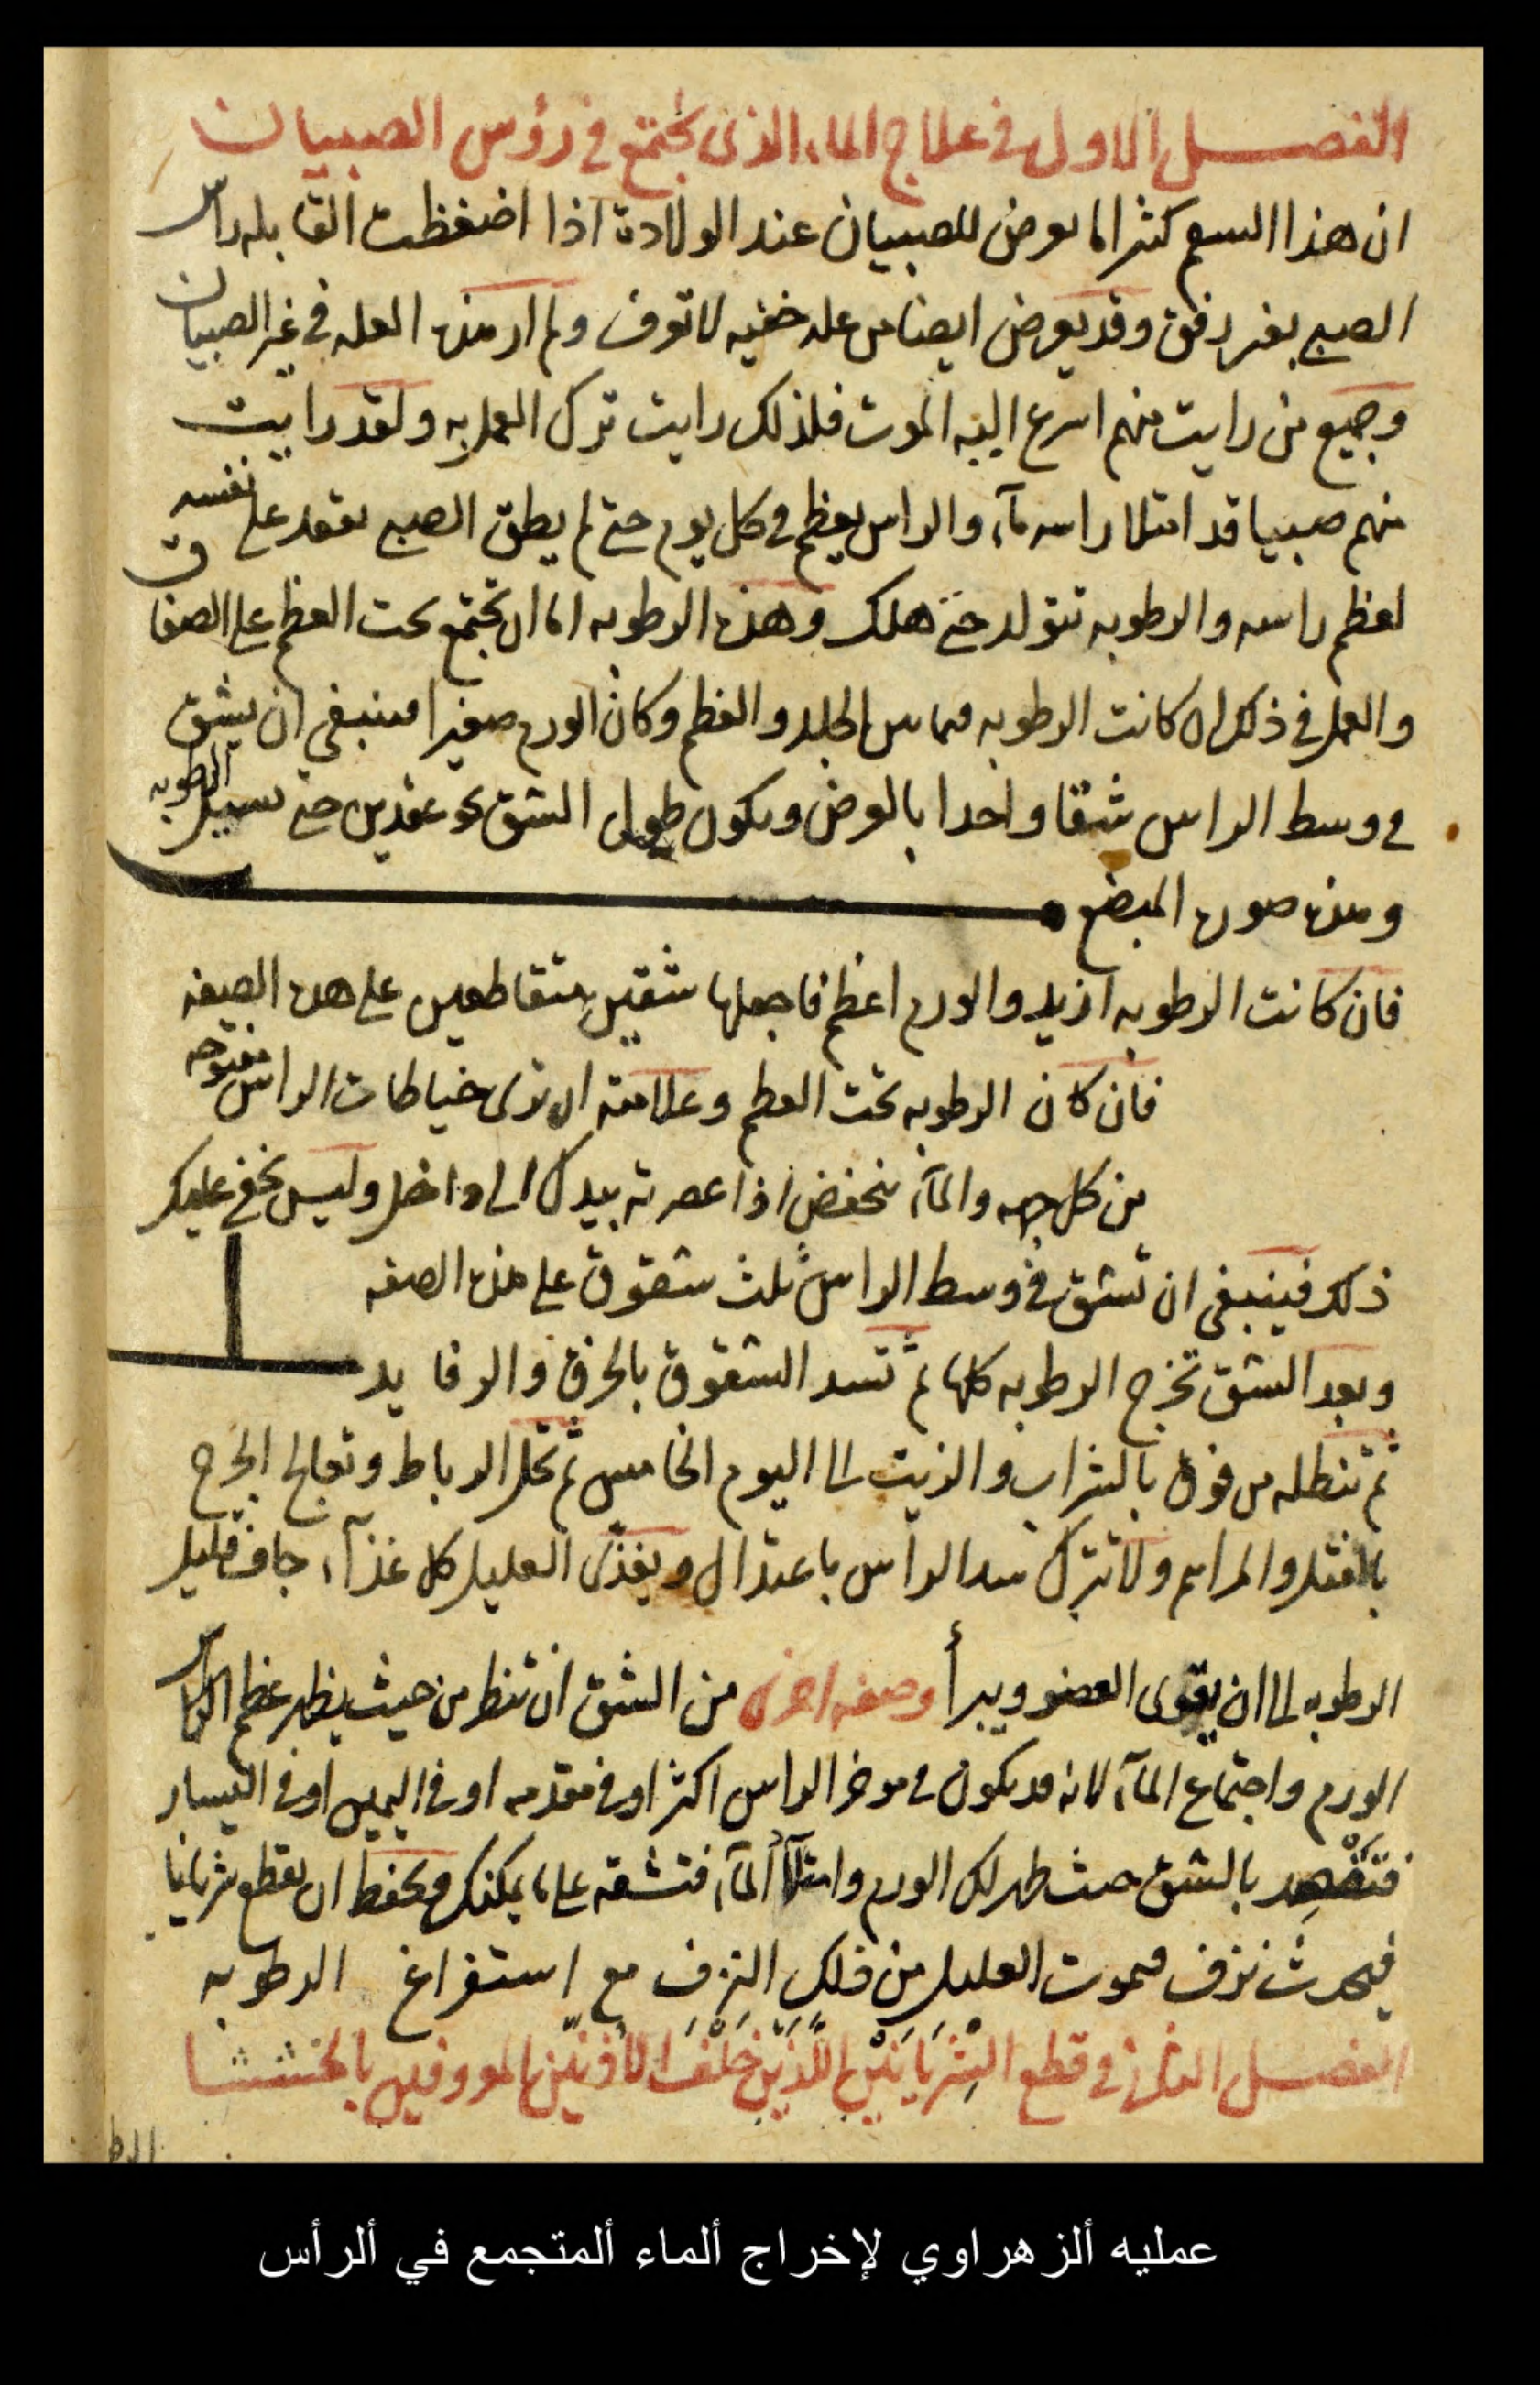 الفصل الاول في علاج الماء الذى يجتمع في رؤس الصبيان
ان هذا السقم كثيرا ما يعرض للصبيان عند الولادة اذا اضغظت القابله راس
الصبي بغير رفق وقد يعرض ايضا من عله خفيه لا تعرف ولم ار هذه العله في غير الصبيان
وجميع من رايت منهم اسرع اليه الموت فلذلك رايت ترك العمل به ولقد رايت
منهم صبيا قد امتلا راسه مآء والراس يعظم في كل يوم حتى لم يطق الصبي يقعد على نفسه
لعظم راسه والرطوبه تتولد حتى هلك وهذه الرطوبه اما ان تجتمع تحت العظم على الصفاق
والعمل في ذلك ان كانت الرطوبه فيما بين الجلد والعظم وكان الورم صغيرا فينبغي ان يشق
في وسط الراس شقا واحدا بالعرض ويكون طول الشق نحو عقدين حتى تسيل الرطوبه
وهذه صورة المبضع
فان كانت الرطوبه ازيد والورم اعظم فاجعلها شقين متقاطعين على هذه الصفه
فان كان الرطوبه تحت العظم وعلامته ان ترى خياطات الراس مفتوحه
من كل جهه والمآء ينخفض اذا عصرته بيدك الى داخل وليس يخفى عليك
ذلك فينبغى ان تشق في وسط الراس ثلث شقوق على هذه الصفه
وبعد الشق تخرج الرطوبه كلها ثم تسد الشقوق بالخرق والرفايد
ثم تنطله من فوق بالشراب والزيت الى اليوم الخامس ثم تحل الرباط وتعالج الجرح
بالفتل والمراهم ولا تترك شد الراس باعتدال ويغذى العليل كل غذآء جاف قليل
الرطوبه الى ان يقوى العضو ويبرأ وصفه اخرى من الشق ان تنظر من حيث يظهر عظم الراس
الورم واجتماع المآء لانه قد يكون في موخر الراس اكثر او في مقدمه او في اليمين او في اليسار
فتقصد بالشق حيث ظهر لك الورم وامتلآ المآء فتشقه على ما يمكنك وتحفظ ان تقطع شريانا
فيحدث نزف فيموت العليل من ذلك النزف مع استفراغ الرطوبه
الفصل الثانى في قطع الشريانين اللذين خلف الاذنين المعروفين بالخششا
عمليه ألزهراوي لإخراج ألماء ألمتجمع في ألرأس